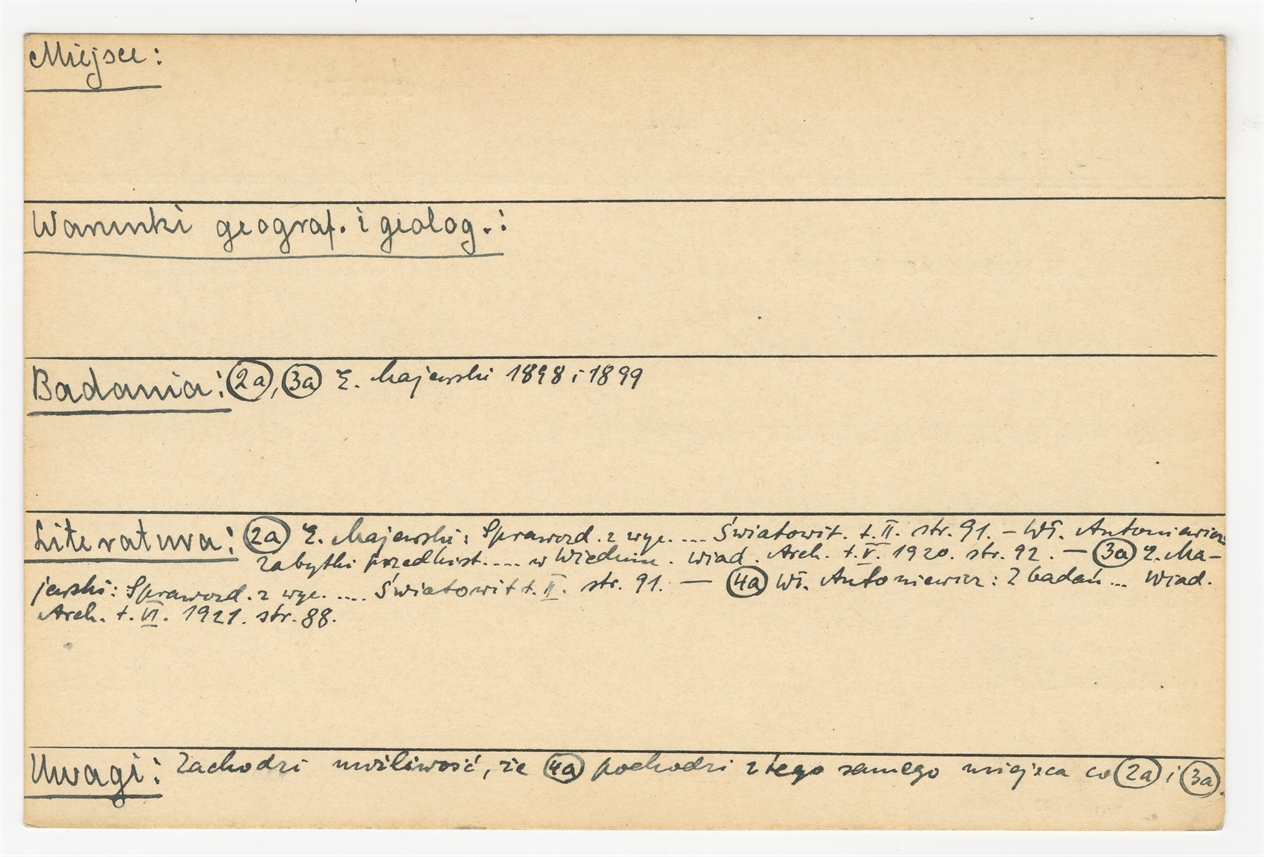 Miejsce:
Warunki geograf. i geolog.:
Badania: (2a), (3a) E. Majewski 1898 i 1899
Literatura: (2a) E. Majewski: Sprawozd. z wyc. .... Światowit. t. II. str. 91. – Wł. Antoniewicz
Zabytki przedhist. .... w Wiedniu. Wiad. Arch. t. V. 1920. str. 92. — (3a) E. Ma-
jewski: Sprawozd. z wyc. .... Światowit t. II. str. 91. — (4a) Wł. Antoniewicz: Z badań... Wiad.
Arch. t. VI. 1921. str. 88.
Uwagi: Zachodzi możliwość, że (4a) pochodzi z tego samego miejsca co (2a) i (3a).